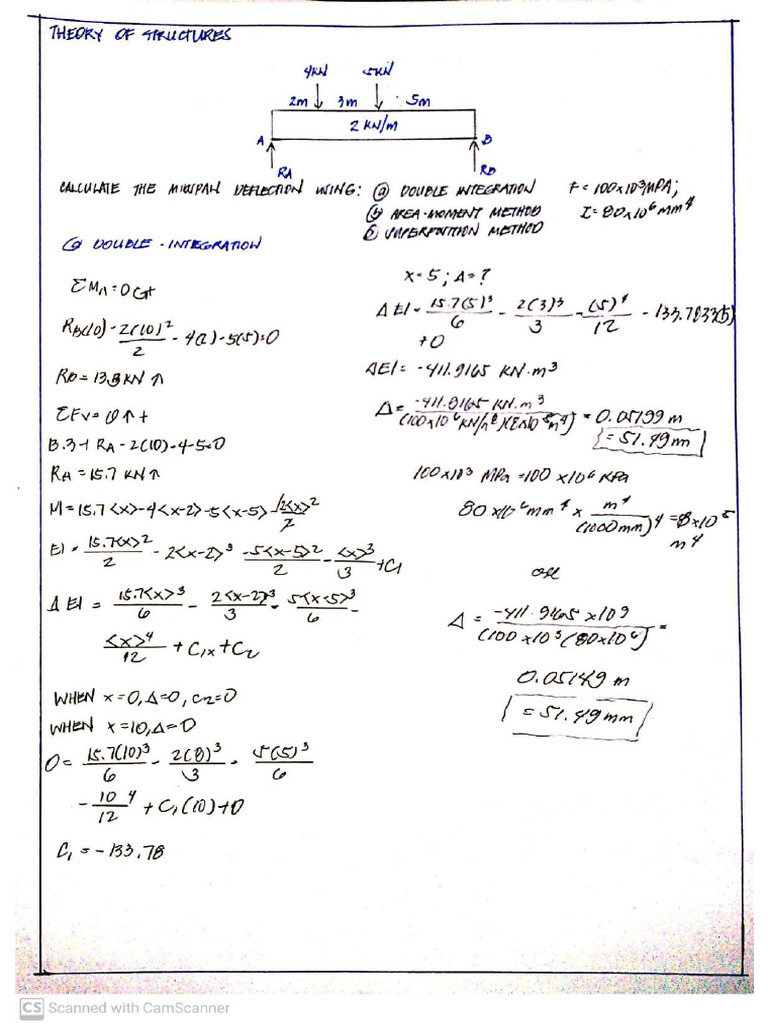 THEORY OF STRUCTURES
4KN 5KN
2m 3m 5m
2 KN/m
A B
RA RB
CALCULATE THE MIDSPAN DEFLECTION USING: ⓐ DOUBLE INTEGRATION E = 100x10³MPA;
ⓑ AREA-MOMENT METHOD I = 80x10⁶mm⁴
ⓒ SUPERPOSITION METHOD
ⓐ DOUBLE-INTEGRATION
ΣMA=0
RB(10) - 2(10)²/2 - 4(2) - 5(5)=0
RB = 13.3 KN ↑
ΣFV = 0 ↑ +
13.3 + RA - 2(10) - 4 - 5=0
RA = 15.7 KN ↑
M = 15.7<x> - 4<x-2> - 5<x-5> - 2<x>²/2
EI = 15.7<x>²/2 - 2<x-2>³ - 5<x-5>²/2 - <x>³/3 + C1
Δ EI = 15.7<x>³/6 - 2<x-2>³/3 - 5<x-5>³/6 -
<x>⁴/12 + C1x + C2
WHEN x=0, Δ=0, C2=0
WHEN x=10, Δ=0
0 = 15.7(10)³/6 - 2(8)³/3 - 5(5)³/6
- 10⁴/12 + C1(10)+0
C1 = -133.78
x=5; Δ=?
Δ EI = 15.7(5)³/6 - 2(3)³/3 - (5)⁴/12 - 133.7833(5)
+0
ΔEI = -411.9165 KN.m³
Δ = -411.9165 KN.m³/(100x10⁶ KN/m²)(8x10⁻⁵ m⁴) = 0.05199 m
= 51.49mm
100x10³ MPa = 100 x10⁶ KPa
80x10⁶mm⁴ x m⁴/(1000mm)⁴ = 8x10⁻⁵
m⁴
OR
Δ = -411.9165 x10⁹/(100x10³(80x10⁶) =
0.05149 m
= 51.49mm
CS Scanned with CamScanner